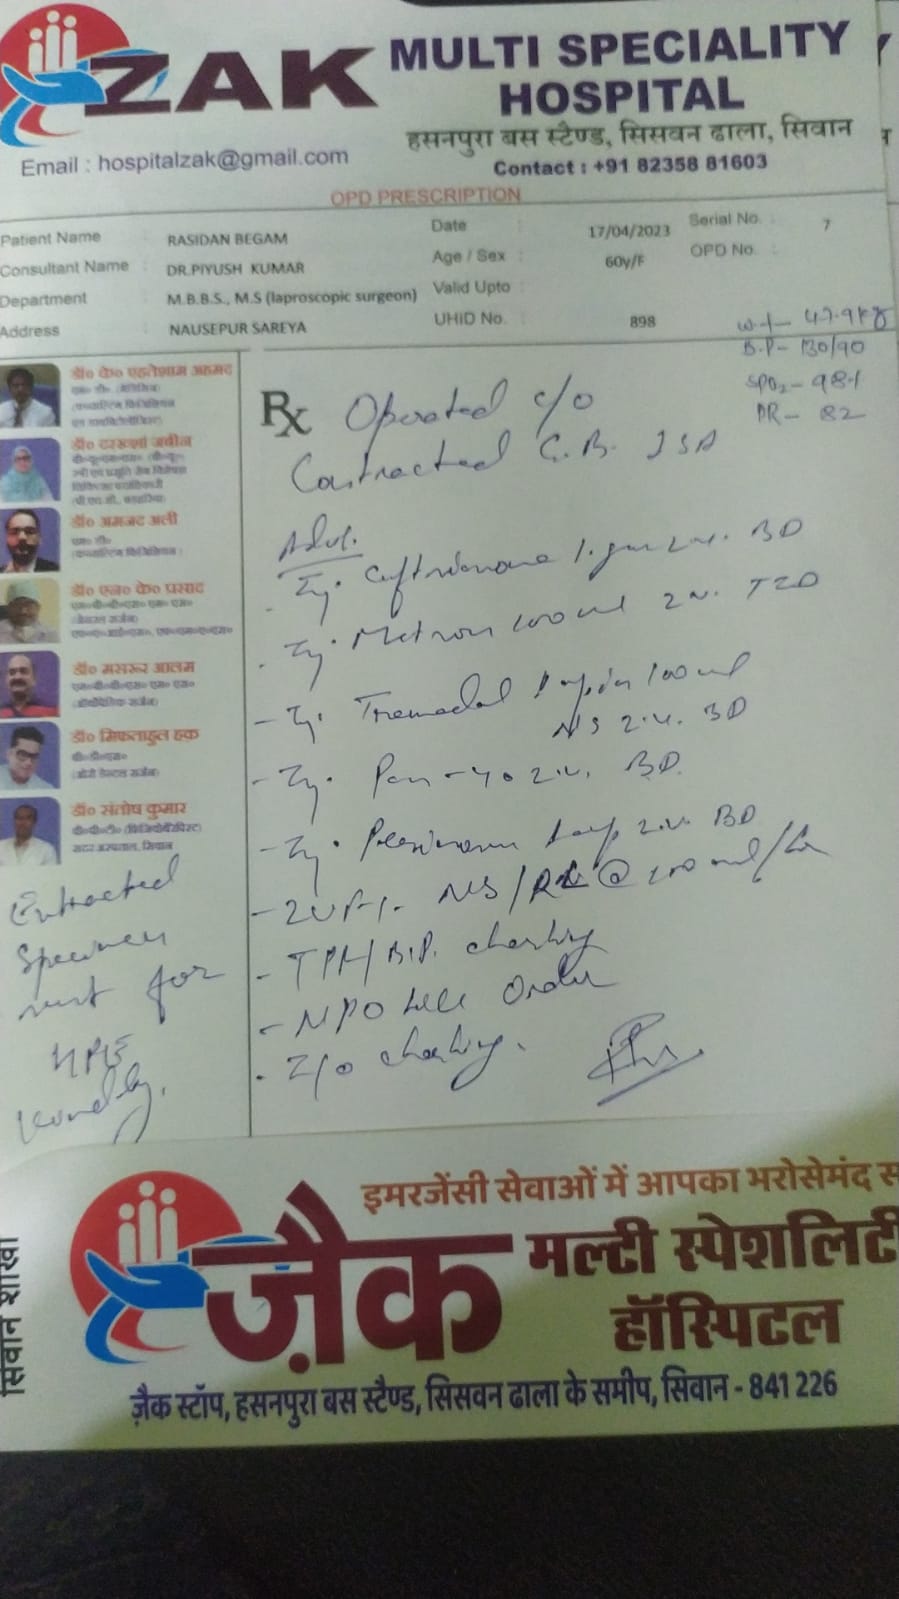 ZAK
MULTI SPECIALITY
HOSPITAL
हसनपुरा बस स्टैण्ड, सिसवन ढाला, सिवान
Email : hospitalzak@gmail.com
Contact : +91 82358 81603
OPD PRESCRIPTION
Patient Name : RASIDAN BEGAM
Date : 17/04/2023
Serial No. : 7
Consultant Name : DR.PIYUSH KUMAR
Age / Sex : 60y/F
OPD No. :
Department : M.B.B.S., M.S (laproscopic surgeon)
Valid Upto :
Address : NAUSEPUR SAREYA
UHID No. : 898
wt- 47.9kg
B.P- 130/90
SPO2- 98%
PR- 82
डॉ० के० एहतेशाम अहमद
डॉ० दरख्शां जबीन
डॉ० अमजद अली
डॉ० एन० के० प्रसाद
डॉ० मसरूर आलम
डॉ० मिफताहुल हक
डॉ० संतोष कुमार
Rx Operated c/o
Contracted G.B.
Adv.
Inj. Ceftriaxone 1 gm I.V. BD
Inj. Metron 100ml I.V. TID
- Inj. Tramadol 1 amp in 100ml
NS I.V. BD
- Inj. Pan-40 I.V. BD
- Inj. 1 amp I.V. BD
- IVF NS/RL @ 100 ml/hr
- TPR/B.P. charting
- NPO till Order
- I/O charting.
Extracted
Specimen
sent for
HPE
kindly.
इमरजेंसी सेवाओं में आपका भरोसेमंद
ज़ैक मल्टी स्पेशलिटी
हॉस्पिटल
सिवान शाखा
ज़ैक स्टॉप, हसनपुरा बस स्टैण्ड, सिसवन ढाला के समीप, सिवान - 841 226